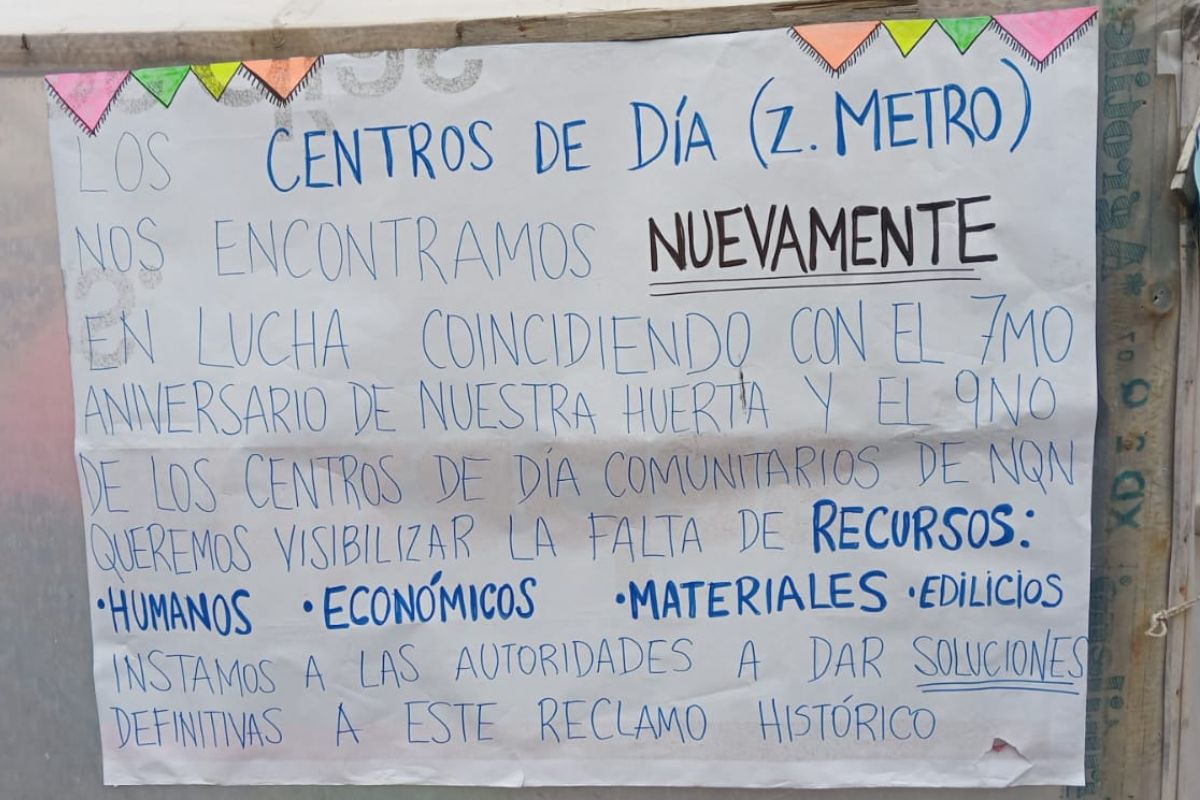 LOS CENTROS DE DÍA (Z. METRO)
NOS ENCONTRAMOS NUEVAMENTE
EN LUCHA COINCIDIENDO CON EL 7MO
ANIVERSARIO DE NUESTRA HUERTA Y EL 9NO
DE LOS CENTROS DE DÍA COMUNITARIOS DE NQN
QUEREMOS VISIBILIZAR LA FALTA DE RECURSOS:
•HUMANOS •ECONÓMICOS •MATERIALES •EDILICIOS
INSTAMOS A LAS AUTORIDADES A DAR SOLUCIONES
DEFINITIVAS A ESTE RECLAMO HISTÓRICO